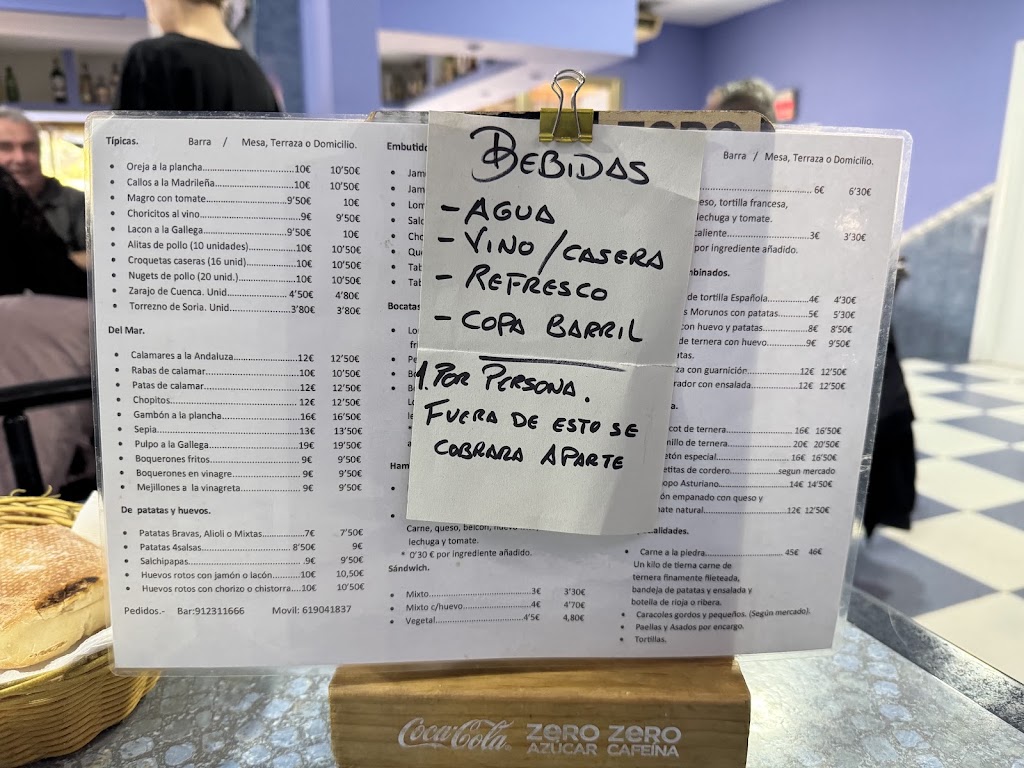 Típicas. Barra / Mesa, Terraza o Domicilio.
• Oreja a la plancha 10€ 10'50€
• Callos a la Madrileña 10€ 10'50€
• Magro con tomate 9'50€ 10€
• Choricitos al vino 9€ 9'50€
• Lacon a la Gallega 9'50€ 10€
• Alitas de pollo (10 unidades) 10€ 10'50€
• Croquetas caseras (16 unid) 10€ 10'50€
• Nugets de pollo (20 unid.) 10€ 10'50€
• Zarajo de Cuenca. Unid 4'50€ 4'80€
• Torrezno de Soria. Unid 3'80€ 3'80€
Del Mar.
• Calamares a la Andaluza 12€ 12'50€
• Rabas de calamar 10€ 10'50€
• Patas de calamar 12€ 12'50€
• Chopitos 12€ 12'50€
• Gambón a la plancha 16€ 16'50€
• Sepia 13€ 13'50€
• Pulpo a la Gallega 19€ 19'50€
• Boquerones fritos 9€ 9'50€
• Boquerones en vinagre 9€ 9'50€
• Mejillones a la vinagreta 9€ 9'50€
De patatas y huevos.
• Patatas Bravas, Alioli o Mixtas 7€ 7'50€
• Patatas 4salsas 8'50€ 9€
• Salchipapas 9€ 9'50€
• Huevos rotos con jamón o lacón 10€ 10,50€
• Huevos rotos con chorizo o chistorra 10€ 10'50€
Pedidos.- Bar:912311666 Movil: 619041837
Embutido
Bocatas
Ham
Carne, queso, beicon,
lechuga y tomate.
* 0'30 € por ingrediente añadido.
Sándwich.
• Mixto 3€ 3'30€
• Mixto c/huevo 4€ 4'70€
• Vegetal 4'5€ 4,80€
BEBIDAS
- AGUA
- VINO/CASERA
- REFRESCO
- COPA BARRIL
1. POR PERSONA.
FUERA DE ESTO SE
COBRARA APARTE
Barra / Mesa, Terraza o Domicilio.
6€ 6'30€
eso, tortilla francesa,
lechuga y tomate.
caliente 3€ 3'30€
por ingrediente añadido.
mbinados.
de tortilla Española 4€ 4'30€
s Morunos con patatas 5€ 5'30€
con huevo y patatas 8€ 8'50€
de ternera con huevo 9€ 9'50€
tas.
za con guarnición 12€ 12'50€
rador con ensalada 12€ 12'50€
a.
cot de ternera 16€ 16'50€
nillo de ternera 20€ 20'50€
etón especial 16€ 16'50€
etitas de cordero segun mercado
opo Asturiano 14€ 14'50€
ón empanado con queso y
mate natural 12€ 12'50€
ialidades.
• Carne a la piedra 45€ 46€
Un kilo de tierna carne de
ternera finamente fileteada,
bandeja de patatas y ensalada y
botella de rioja o ribera.
• Caracoles gordos y pequeños. (Según mercado).
• Paellas y Asados por encargo.
• Tortillas.
Coca-Cola ZERO AZÚCAR ZERO CAFEÍNA